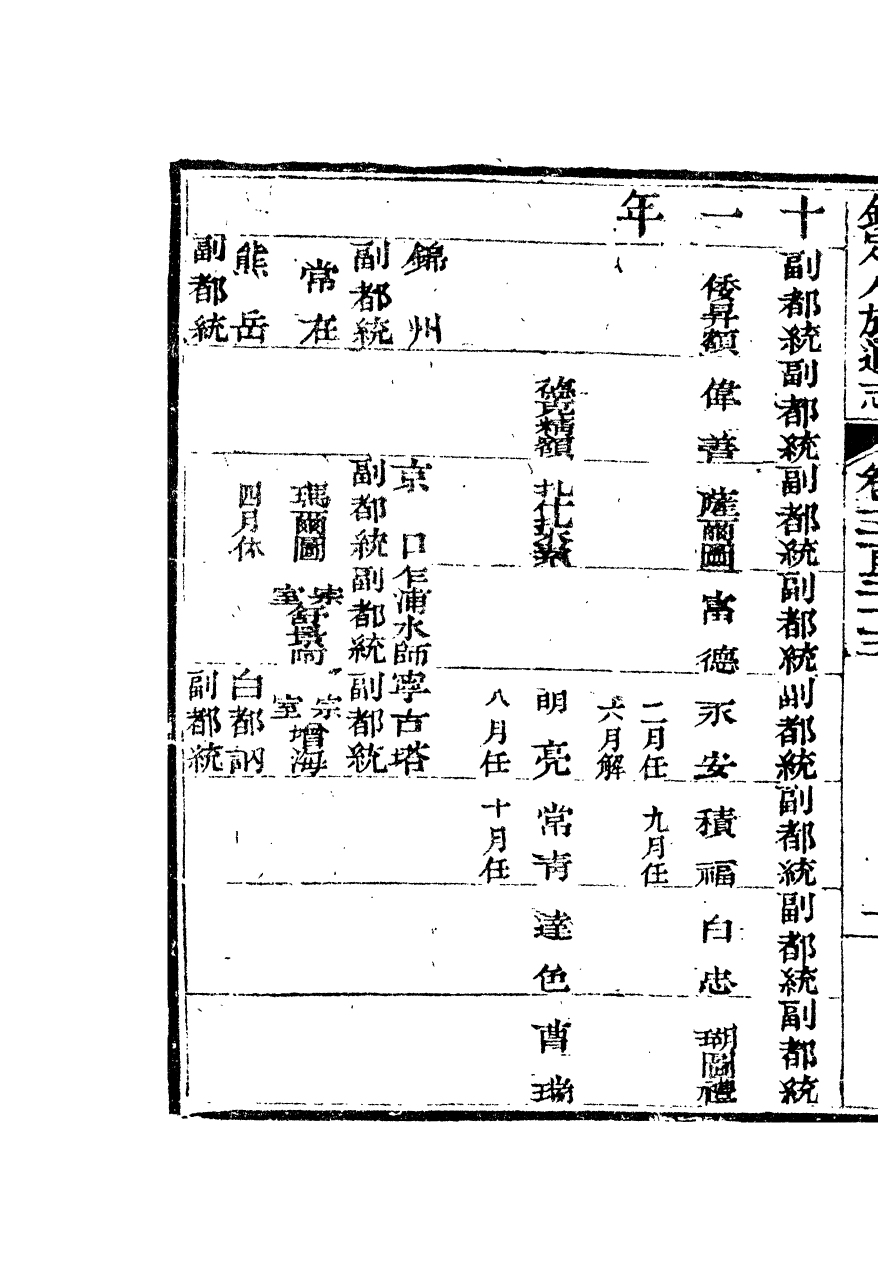 欽定八旗通志
十 副都統 副都統 副都統 副都統 副都統 副都統 副都統 副都統
一 倭昇額 偉善 薩爾圖 富德 永安 積福 白忠 瑚圖禮
二月任 九月任
年 六月解
明亮 常青 達色 曹瑞
八月任 十月任
錦州 京口 乍浦水師 寧古塔
副都統 副都統 副都統 副都統
常在 瑪爾圖 宗室 宗室增海
四月休
熊岳 白都訥
副都統 副都統